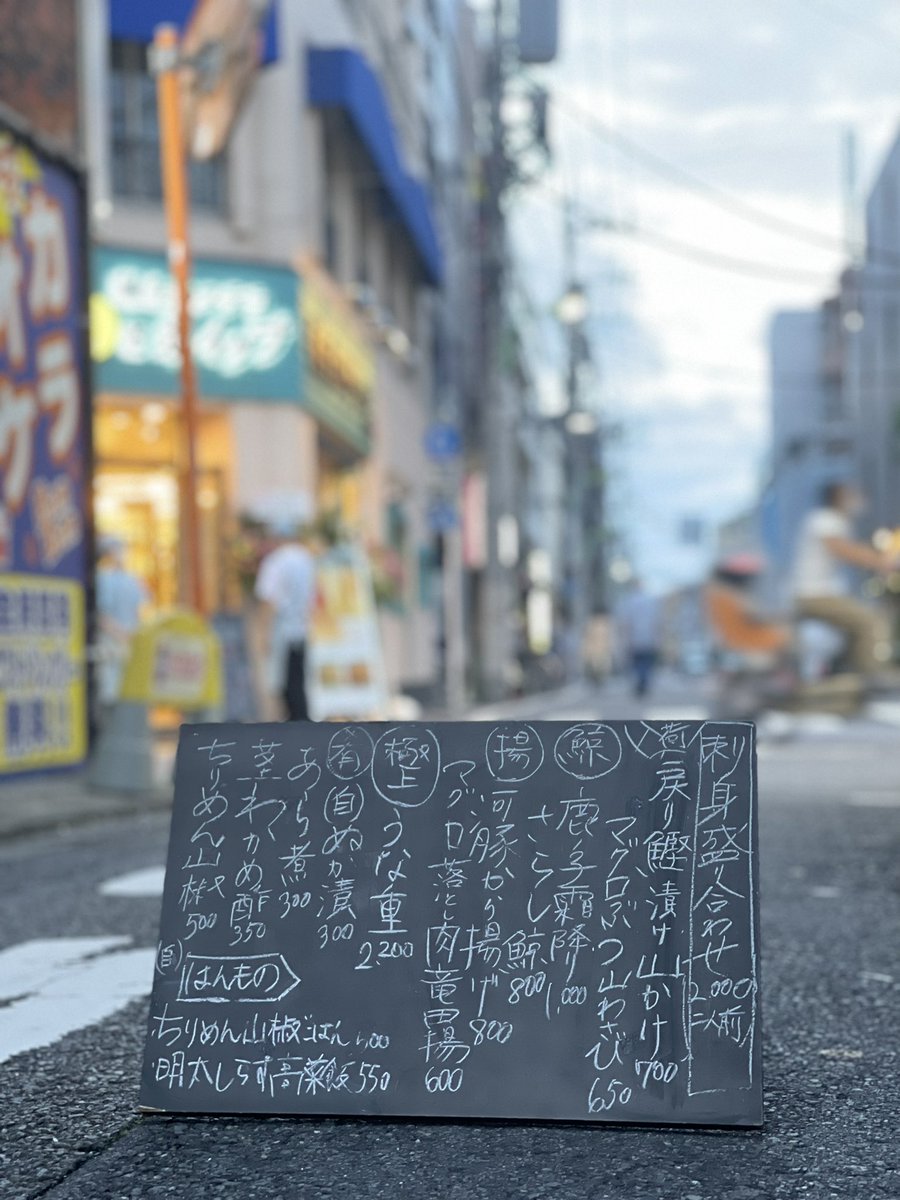 刺身盛り合わせ 2,000 二人前
戻り鰹漬け山かけ 700
マグロぶつ山わさび 650
鯨 鹿子霜降り 1,000
さらし鯨 800
揚 河豚から揚げ 800
マグロ落とし肉竜田揚 600
極上 うな重 2,200
自 ぬか漬 300
あら煮 300
茎わかめ酢 350
ちりめん山椒 500
自 はんもの
ちりめん山椒ごはん
明太しらす高菜飯 550
カラ
オケ